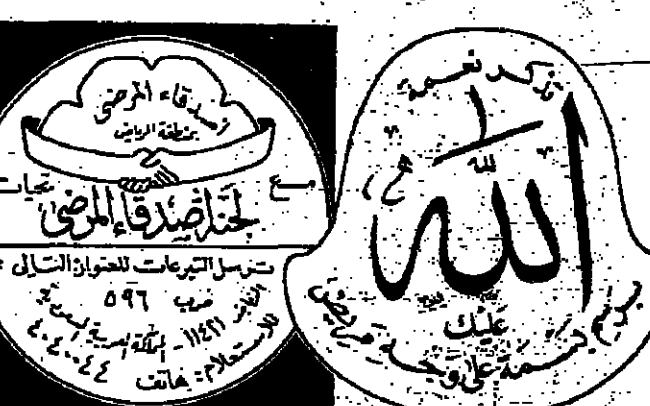 تذكر نعمة
الله
عليك
برسم بسمة على وجه مريض
أصدقاء المرضى
بمنطقة الرياض
مع تحيات
لجنة أصدقاء المرضى
ترسل التبرعات للعنوان التالي :
ص.ب ٥٩٦
الرياض ١١٤٢١ - المملكة العربية السعودية
للاستعلام : هاتف ٤٠٤٠٠٤٤